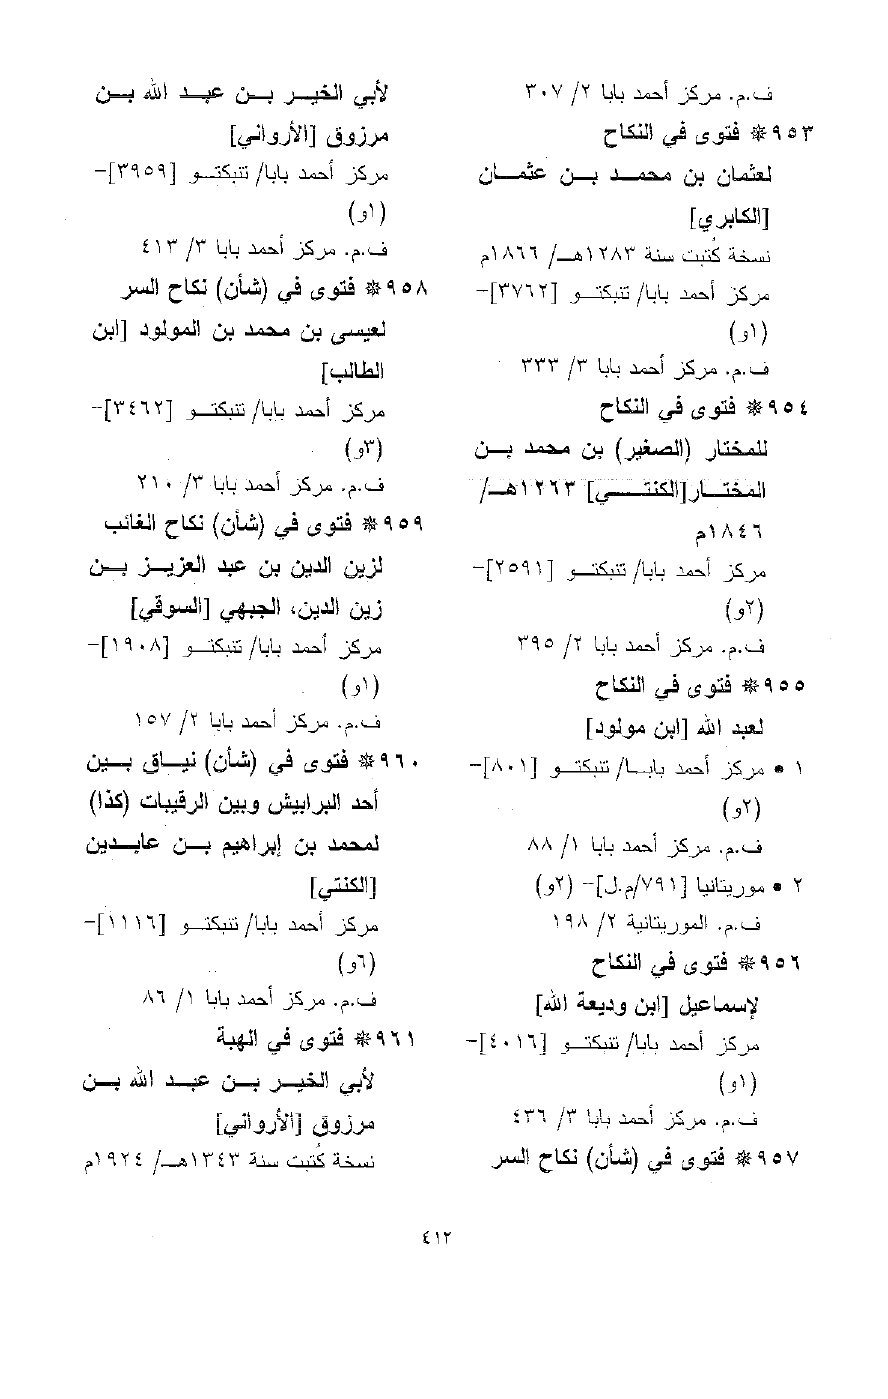 ف.م. مركز أحمد بابا ٢/ ٣٠٧
٩٥٣ ❊ فتوى في النكاح
لعثمان بن محمد بن عثمان
[الكابري]
نسخة كُتبت سنة ١٢٨٣هـ/ ١٨٦٦م
مركز أحمد بابا/ تنبكتو [٣٧٦٢]-
(١و)
ف.م. مركز أحمد بابا ٣/ ٣٣٣
٩٥٤ ❊ فتوى في النكاح
للمختار (الصغير) بن محمد بن
المختار[الكنتي] ١٢٦٣هـ/
١٨٤٦م
مركز أحمد بابا/ تنبكتو [٢٥٩١]-
(٢و)
ف.م. مركز أحمد بابا ٢/ ٣٩٥
٩٥٥ ❊ فتوى في النكاح
لعبد الله [ابن مولود]
١ • مركز أحمد بابا/ تنبكتو [٨٠١]-
(٢و)
ف.م. مركز أحمد بابا ١/ ٨٨
٢ • موريتانيا [٧٩١/ل.م]- (٢و)
ف.م. الموريتانية ٢/ ١٩٨
٩٥٦ ❊ فتوى في النكاح
لإسماعيل [ابن وديعة الله]
مركز أحمد بابا/ تنبكتو [٤٠١٦]-
(١و)
ف.م. مركز أحمد بابا ٣/ ٤٣٦
٩٥٧ ❊ فتوى في (شأن) نكاح السر
لأبي الخير بن عبد الله بن
مرزوق [الأرواني]
مركز أحمد بابا/ تنبكتو [٣٩٥٩]-
(١و)
ف.م. مركز أحمد بابا ٣/ ٤١٣
٩٥٨ ❊ فتوى في (شأن) نكاح السر
لعيسى بن محمد بن المولود [ابن
الطالب]
مركز أحمد بابا/ تنبكتو [٣٤٦٢]-
(٣و)
ف.م. مركز أحمد بابا ٣/ ٢١٠
٩٥٩ ❊ فتوى في (شأن) نكاح الغائب
لزين الدين بن عبد العزيز بن
زين الدين، الجبهي [السوقي]
مركز أحمد بابا/ تنبكتو [١٩٠٨]-
(١و)
ف.م. مركز أحمد بابا ٢/ ١٥٧
٩٦٠ ❊ فتوى في (شأن) نياق بين
أحد البرابيش وبين الرقيبات (كذا)
لمحمد بن إبراهيم بن عابدين
[الكنتي]
مركز أحمد بابا/ تنبكتو [١١١٦]-
(٦و)
ف.م. مركز أحمد بابا ١/ ٨٦
٩٦١ ❊ فتوى في الهبة
لأبي الخير بن عبد الله بن
مرزوق [الأرواني]
نسخة كُتبت سنة ١٣٤٣هـ/ ١٩٢٤م
٤١٢